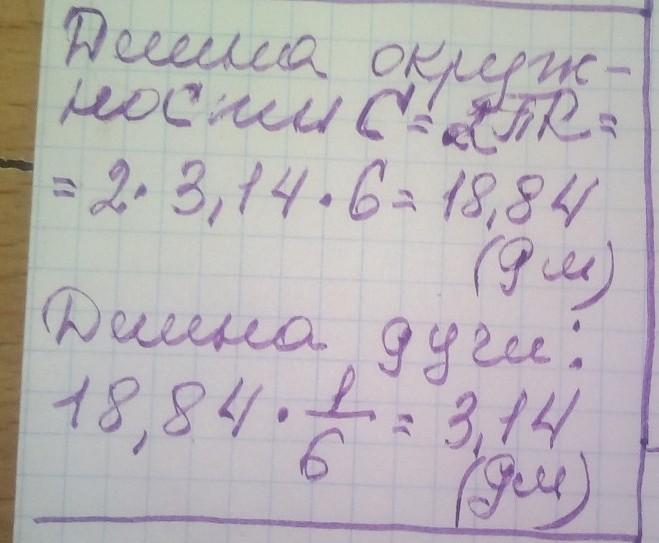 Длина окруж-
ности C = 2πR =
= 2 · 3,14 · 6 = 18,84
(дм)
Длина дуги:
18,84 · 1/6 = 3,14
(дм)